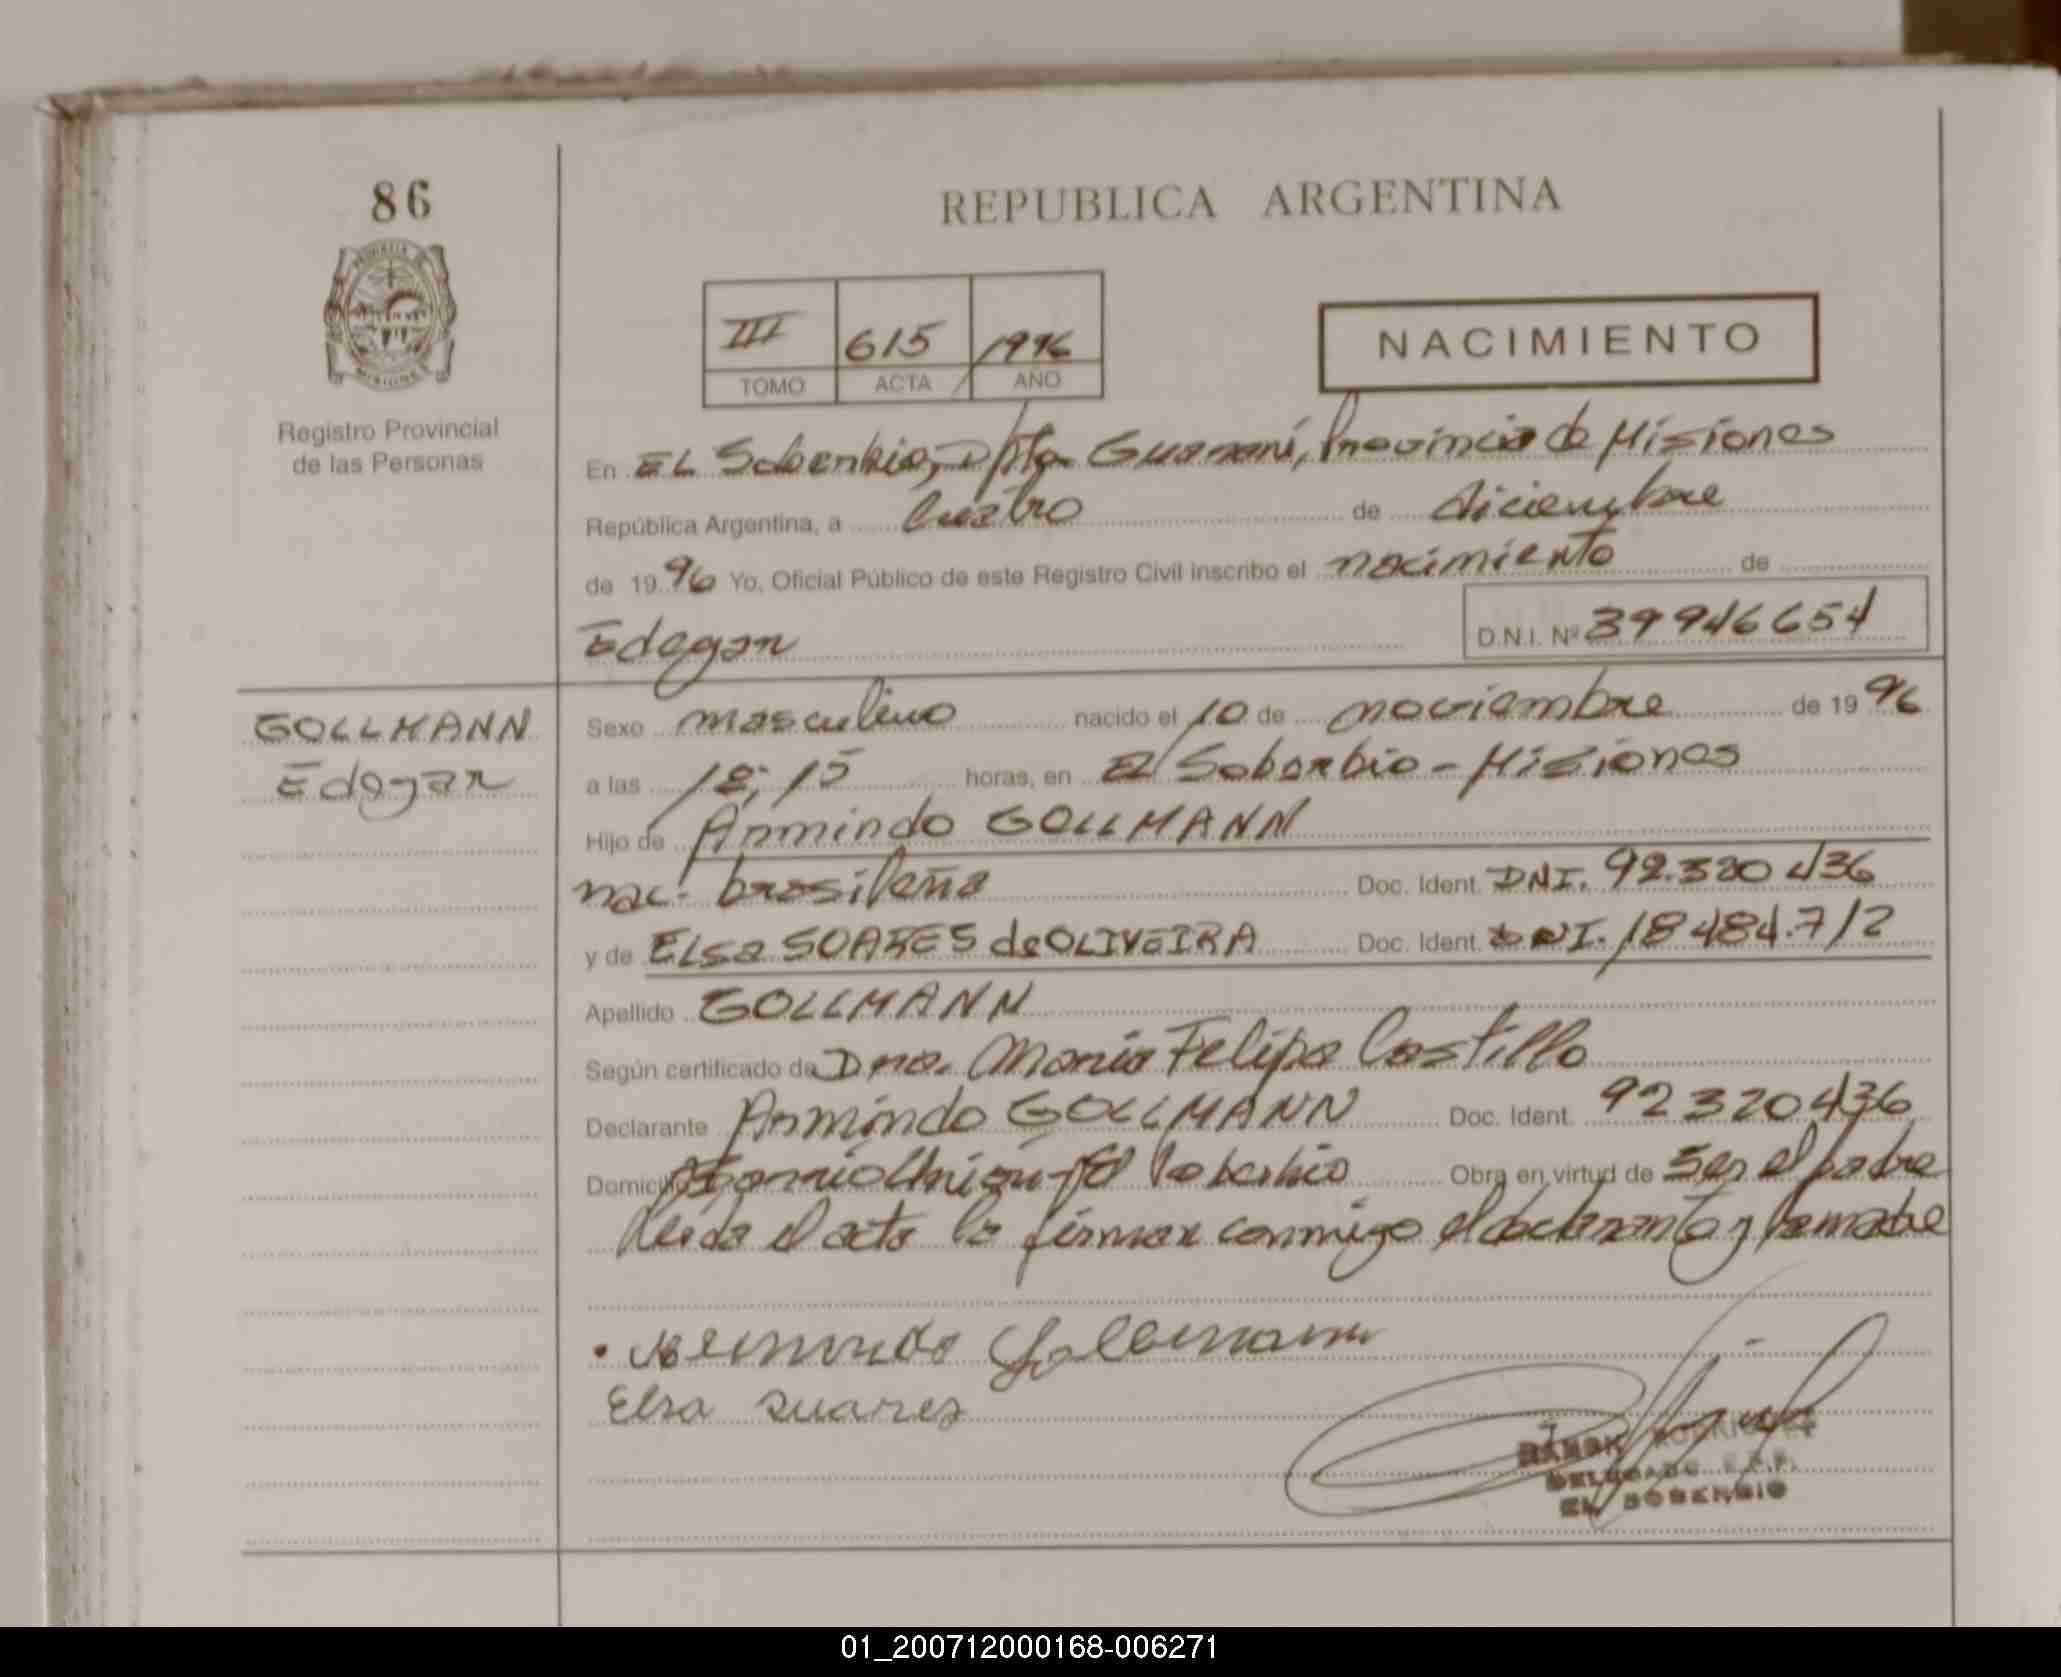 86
REPUBLICA ARGENTINA
III 615 1996
TOMO ACTA AÑO
NACIMIENTO
Registro Provincial
de las Personas
En EL Soberbio, Dpto. Guaraní, Provincia de Misiones
República Argentina, a cuatro de diciembre
de 1996 Yo, Oficial Público de este Registro Civil inscribo el nacimiento de
Edegar
D.N.I. Nº 39946654
GOLLMANN
Edegar
Sexo masculino nacido el 10 de noviembre de 1996
a las 18:15 horas, en El Soberbio - Misiones
Hijo de Armindo GOLLMANN
nac. brasileña Doc. Ident. DNI. 92.320436
y de ELsa SOARES de OLIVEIRA Doc. Ident. DNI. 18484.712
Apellido GOLLMANN
Según certificado de Dna. Maria Felipa Castillo
Declarante Armindo GOLLMANN Doc. Ident. 92320436
Domicilio Barrio Unión - El Soberbio Obra en virtud de ser el padre
Leida el acta la firman conmigo el declarante y la madre
Gollmann
Elsa suares
RAMON RODRIGUEZ
DELEGADO R.P.P.
EL SOBERBIO
01_200712000168-006271